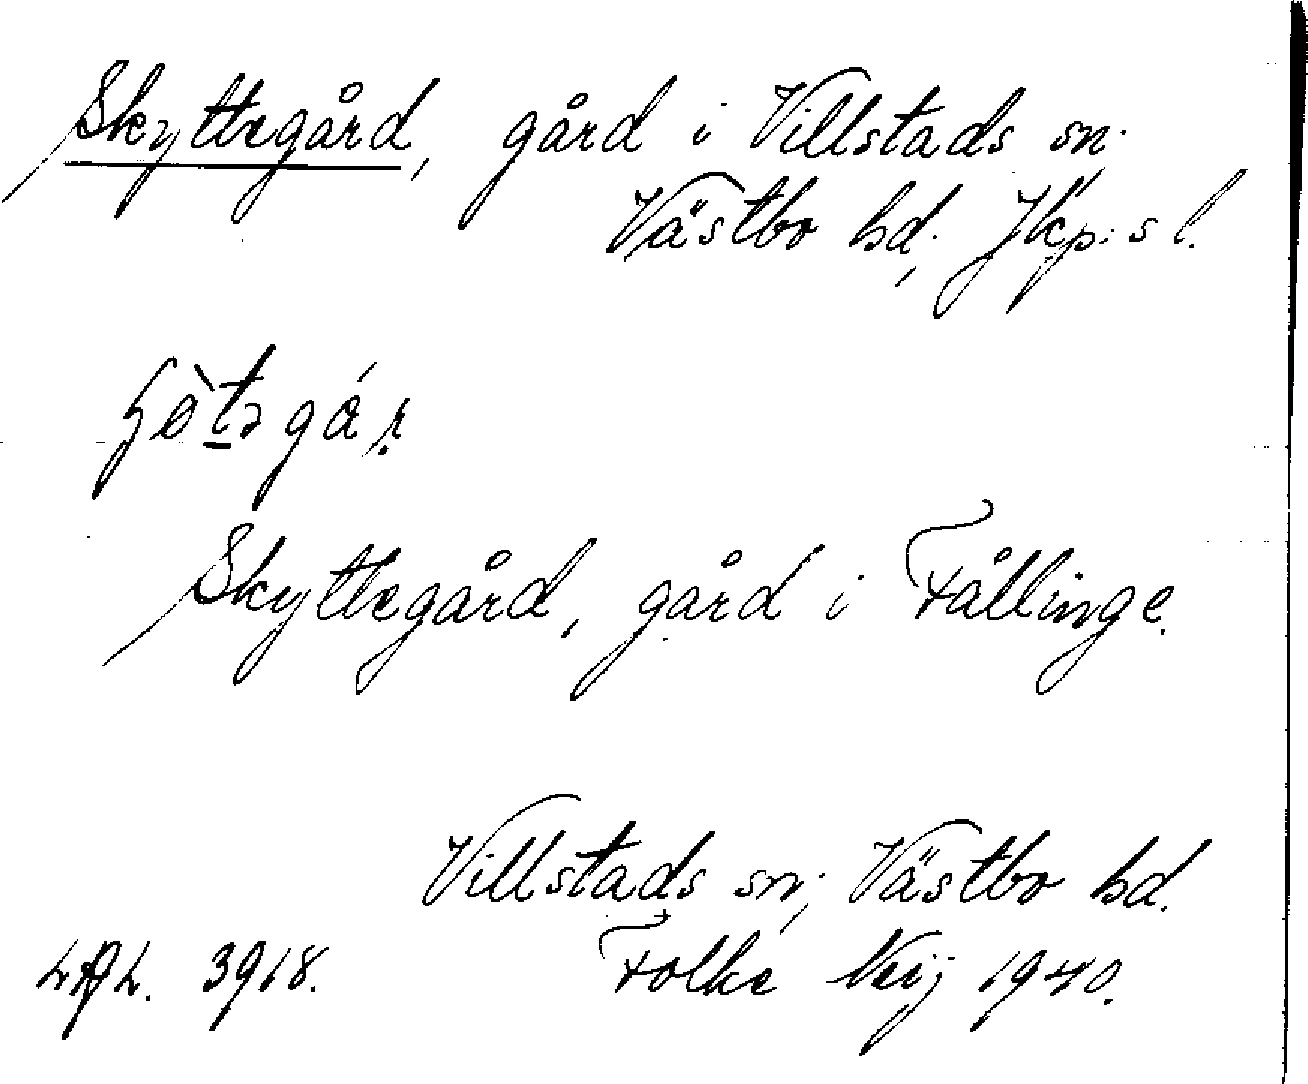 Skyttegård, gård i Villstads sn.
Västbo hd, Jkp:s l.
Skyttegård, gård i Fållinge.
Villstads sn; Västbo hd.
3918. Folke 1940.